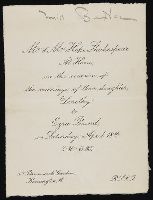 Mr & Mrs Hope Shakespear
At Home,
on the occasion of
the marriage of their daughter,
Dorothy
to
Ezra Pound,
on Saturday, April 18th
Gardens
Kensington, W.
R.S.V.P.